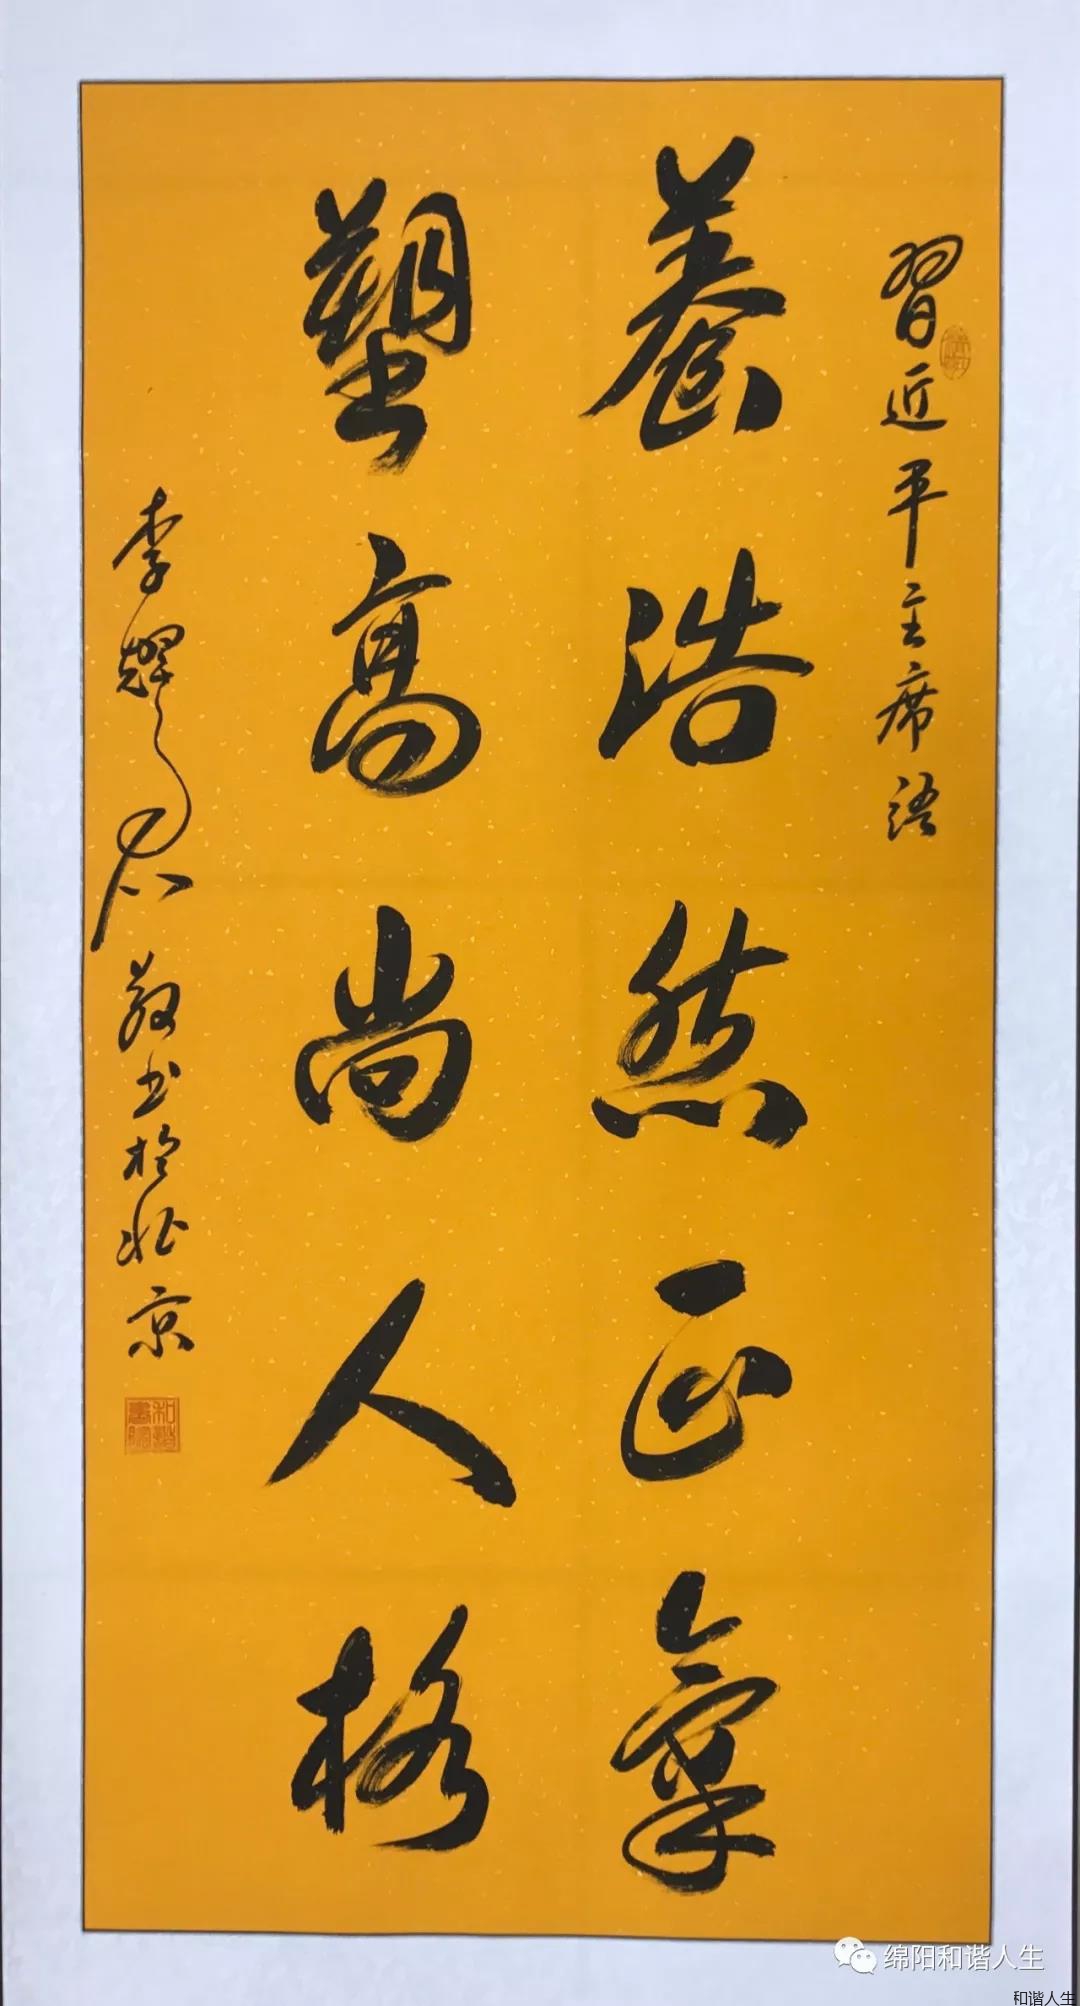 習近平主席語
養浩然正氣
塑高尚人格
李耀君敬书於北京
和諧書院
绵阳和谐人生
和谐人生